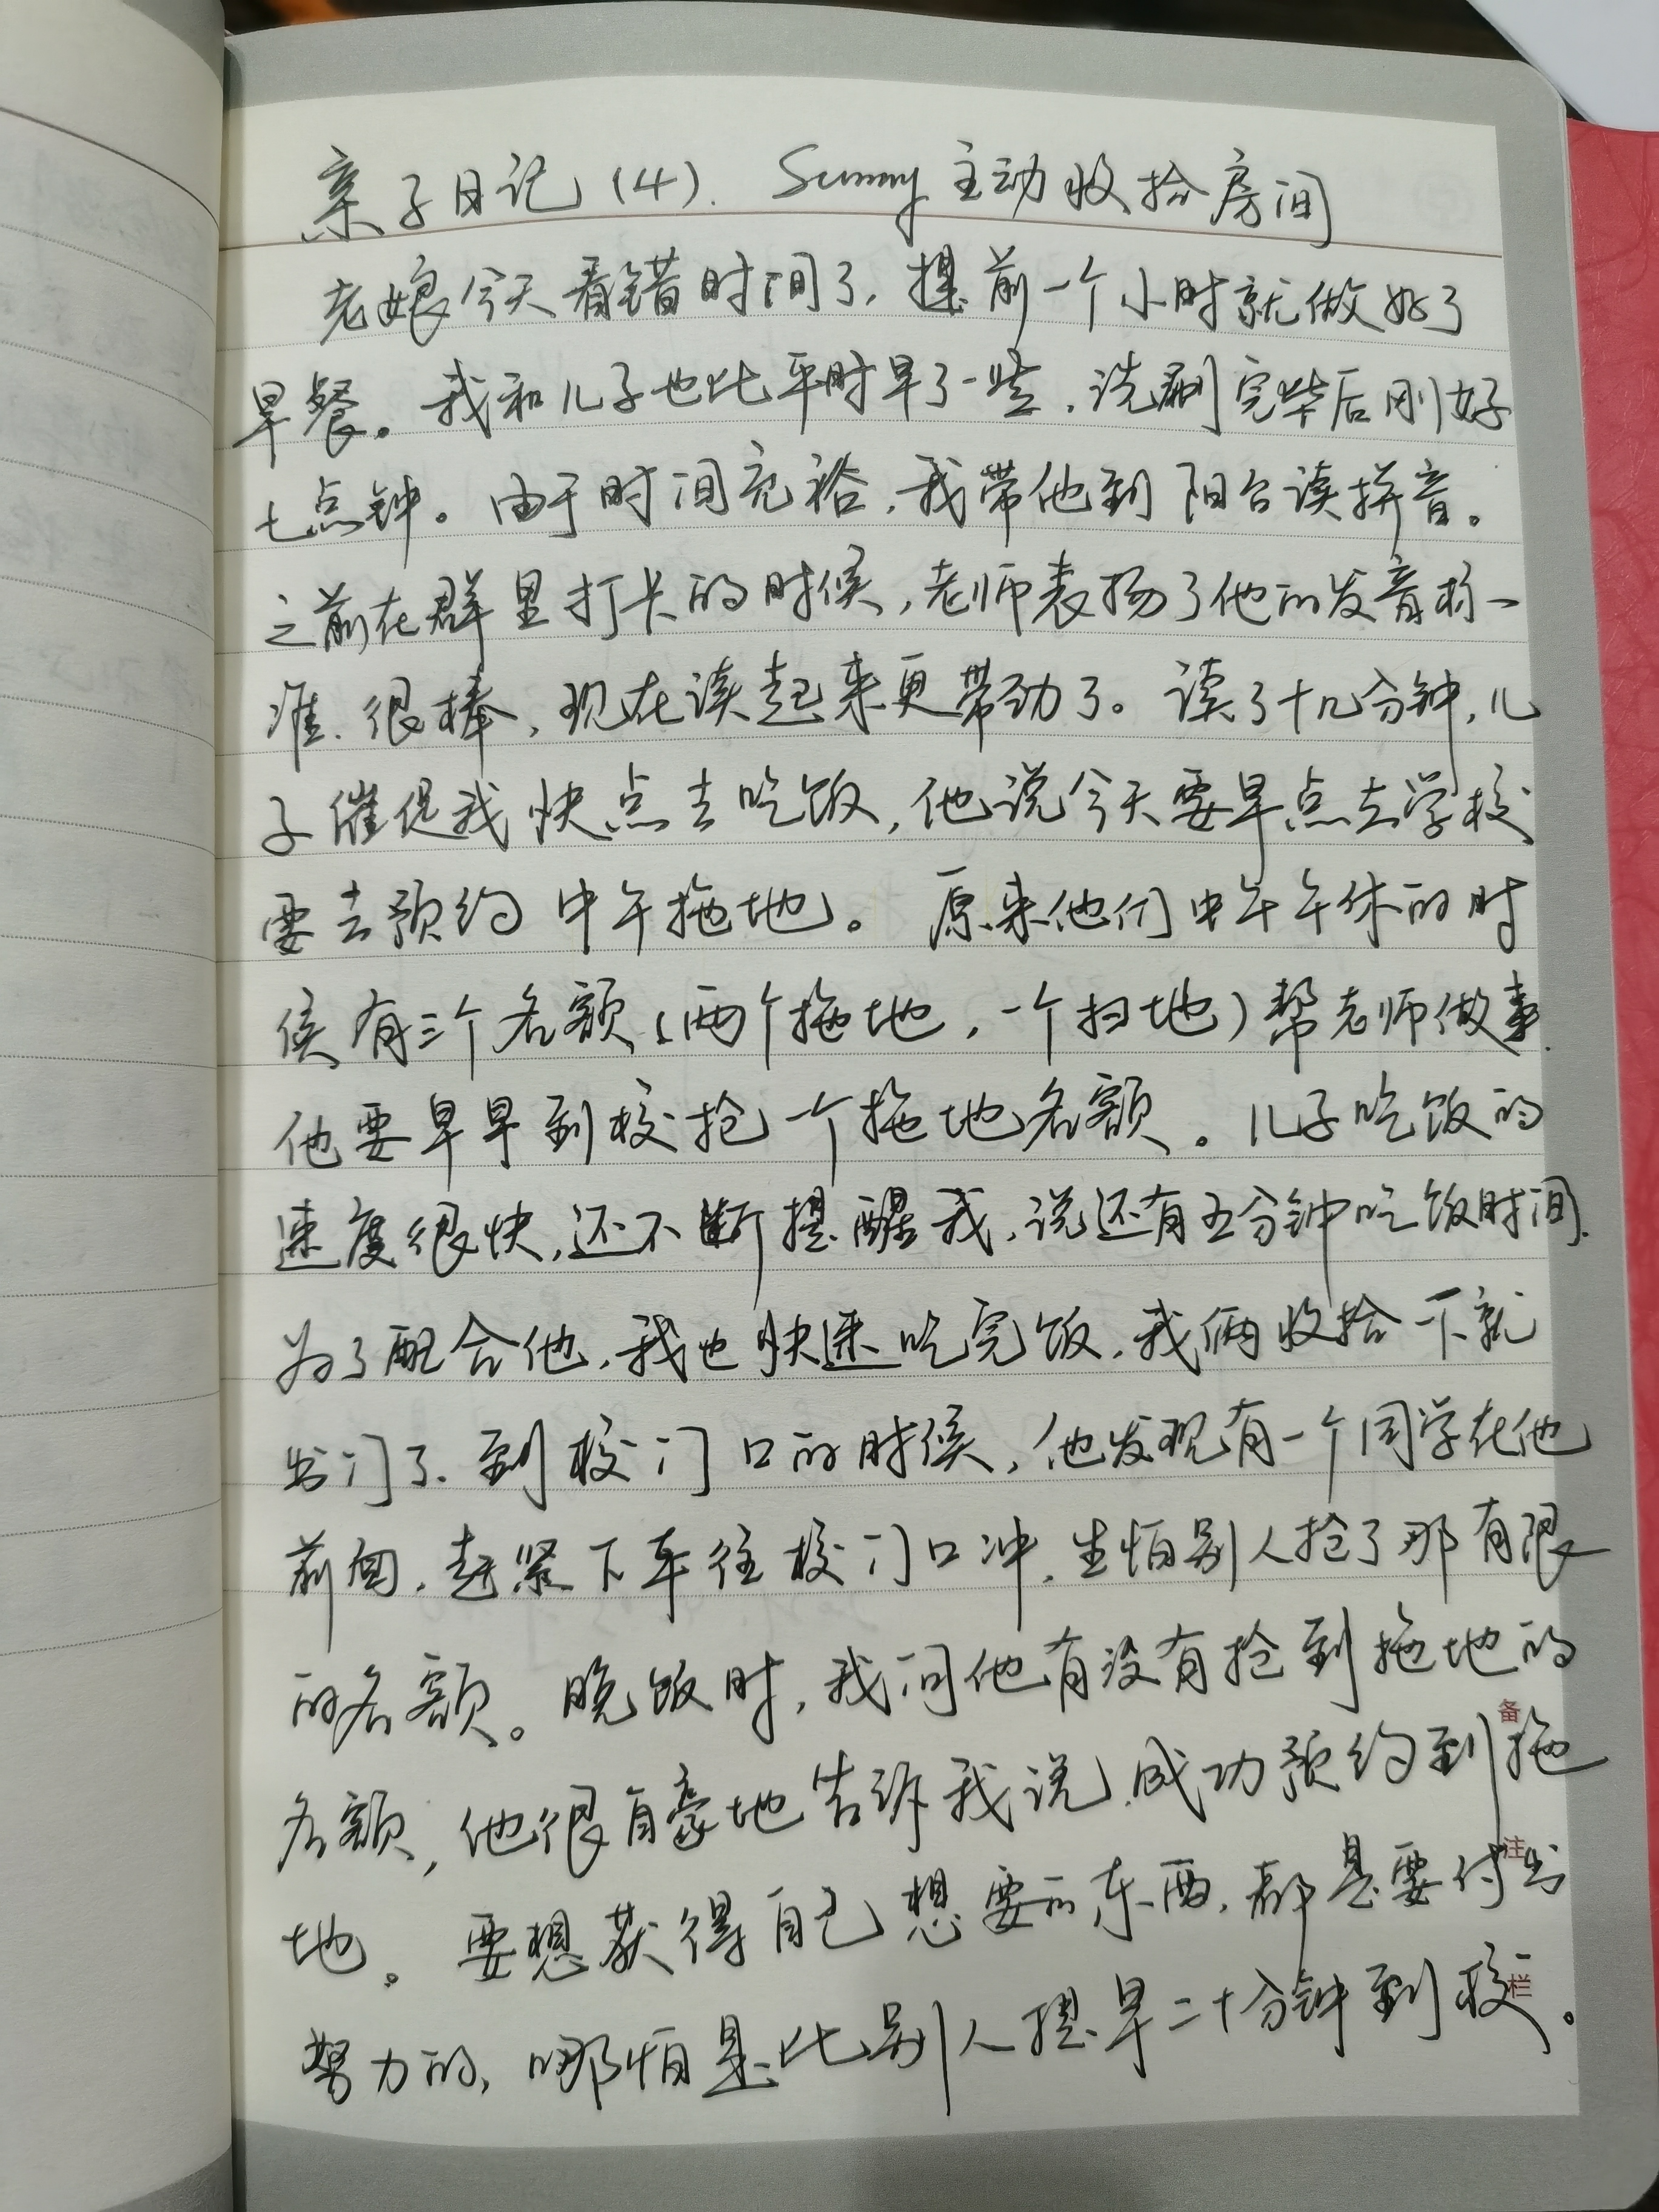 亲子日记(4). Sunny主动收拾房间
老娘今天看错时间了,提前一个小时就做好了
早餐。我和儿子也比平时早了一些,洗刷完毕后刚好
七点钟。由于时间充裕,我带他到阳台读拼音。
之前在群里打卡的时候,老师表扬了他的发音标
准、很棒,现在读起来更带劲了。读了十几分钟,儿
子催促我快点去吃饭,他说今天要早点去学校
要去预约中午拖地。原来他们中午午休的时
候有三个名额(两个拖地,一个扫地)帮老师做事.
他要早早到校抢一个拖地名额。儿子吃饭的
速度很快,还不断提醒我,说还有五分钟吃饭时间.
为了配合他,我也快速吃完饭,我俩收拾一下就
出门了、到校门口的时候,他发现有一个同学在他
前面,赶紧下车往校门口冲,生怕别人抢了那有限
的名额。晚饭时,我问他有没有抢到拖地的
备
名额,他很自豪地告诉我说,成功预约到拖
注
地。要想获得自己想要的东西,都是要付出
栏
努力的,哪怕是比别人提早二十分钟到校。